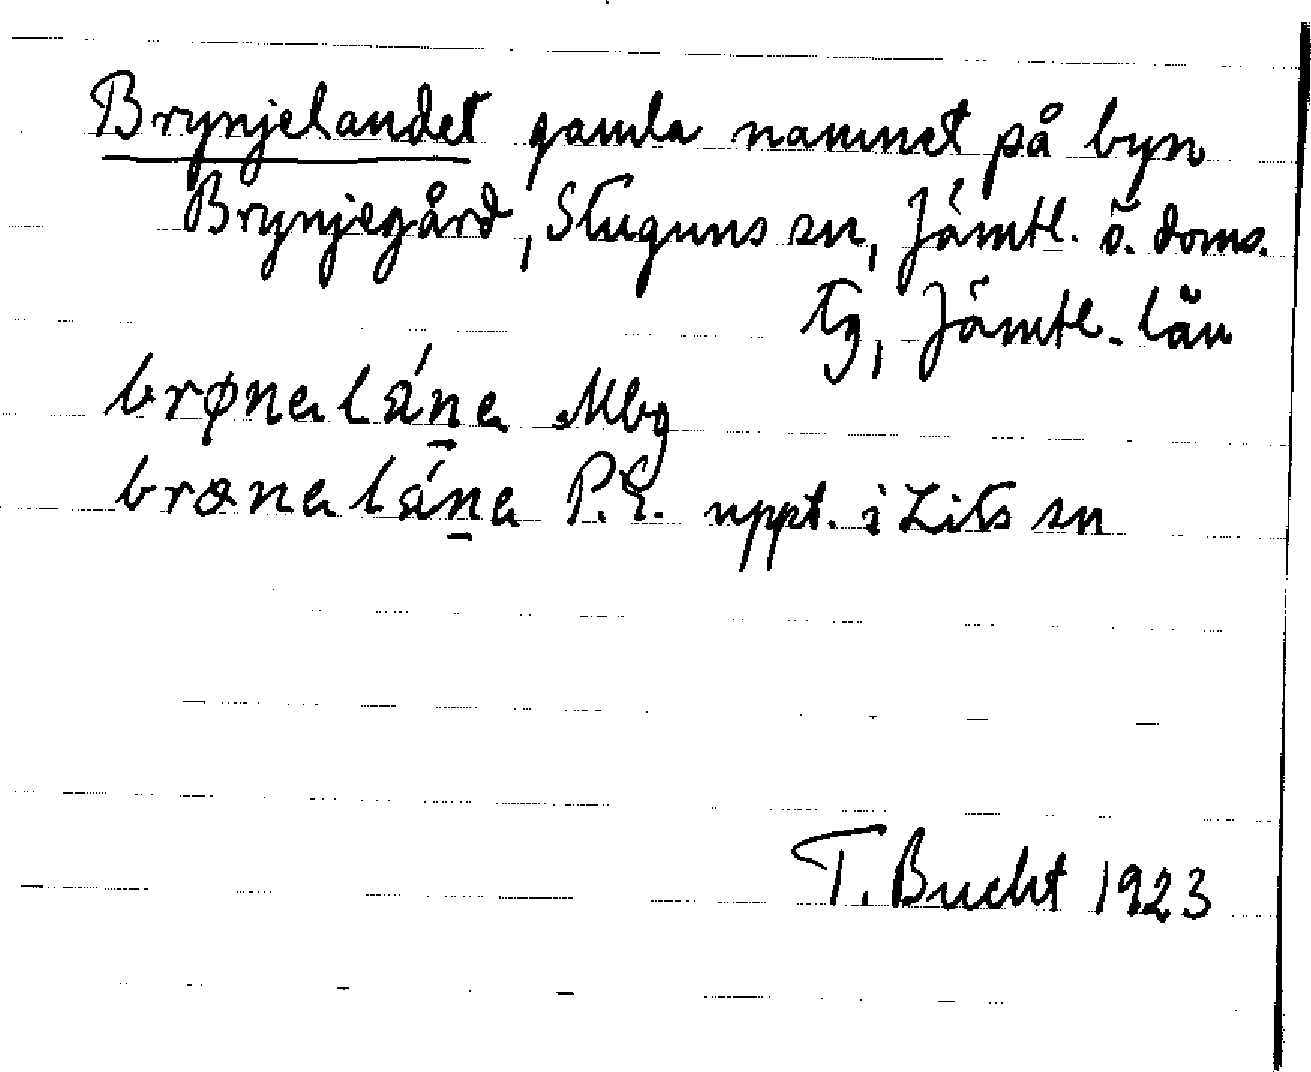 Brynjelandet gamla namnet på byn
Brynjegård, Stuguns sn, Jämtl. ö. doms.
tg, Jämtl. län
brønaláṉa Mbg
brænaláṉa P.E. uppt. i Lits sn
T. Bucht 1923